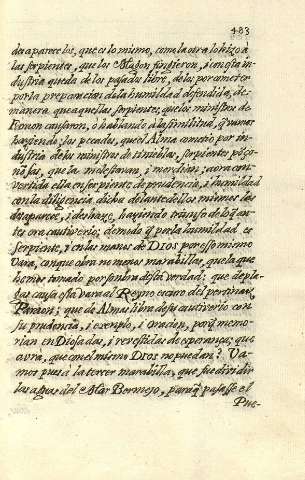 483
desaparecelos, que es lo mismo, como la otra lo hizo à
las serpientes, que los Magos fingieron, i con esta in-
dustria queda de los pasados libre, de los por cometer
por la preparacion de la humildad defendida, de
manera que aquellas serpientes, que los ministros de
Faraon causaron, o hablando a la similitud, que vamos
haziendo, los pecados, que el Alma cometio por in-
dustria de los ministros de tinieblas, serpientes ponço-
ñosas, que la molestavan, i mordian; aora con-
vertida ella en serpiente de prudencia, i humildad
con la diligencia dicha delante de los mismos las
desaparece, i deshaze, haziendo triunfo de lo q̃ an-
tes era cautiverio; demodo q̃ por la humildad es
serpiente, i en las manos de DIOS por eso mismo
vara, con que obra no menos maravillas, que la que
hemos tomado por sombra desta verdad: que de pla-
gas causa esta vara al Reyno escuro del pertinaz
Faraon; que de Almas libra de su cautiverio con
su prudencia, i exemplo, i oracion, porq̃ memo-
rian en Dios a das, i revestidas de esperança; que
avra, que con el mismo DIOS no puedan? Va-
mos pues à la tercer maravilla, que fue dividir
las aguas del Mar Bermejo, paraq̃ pasasse el
Pue-